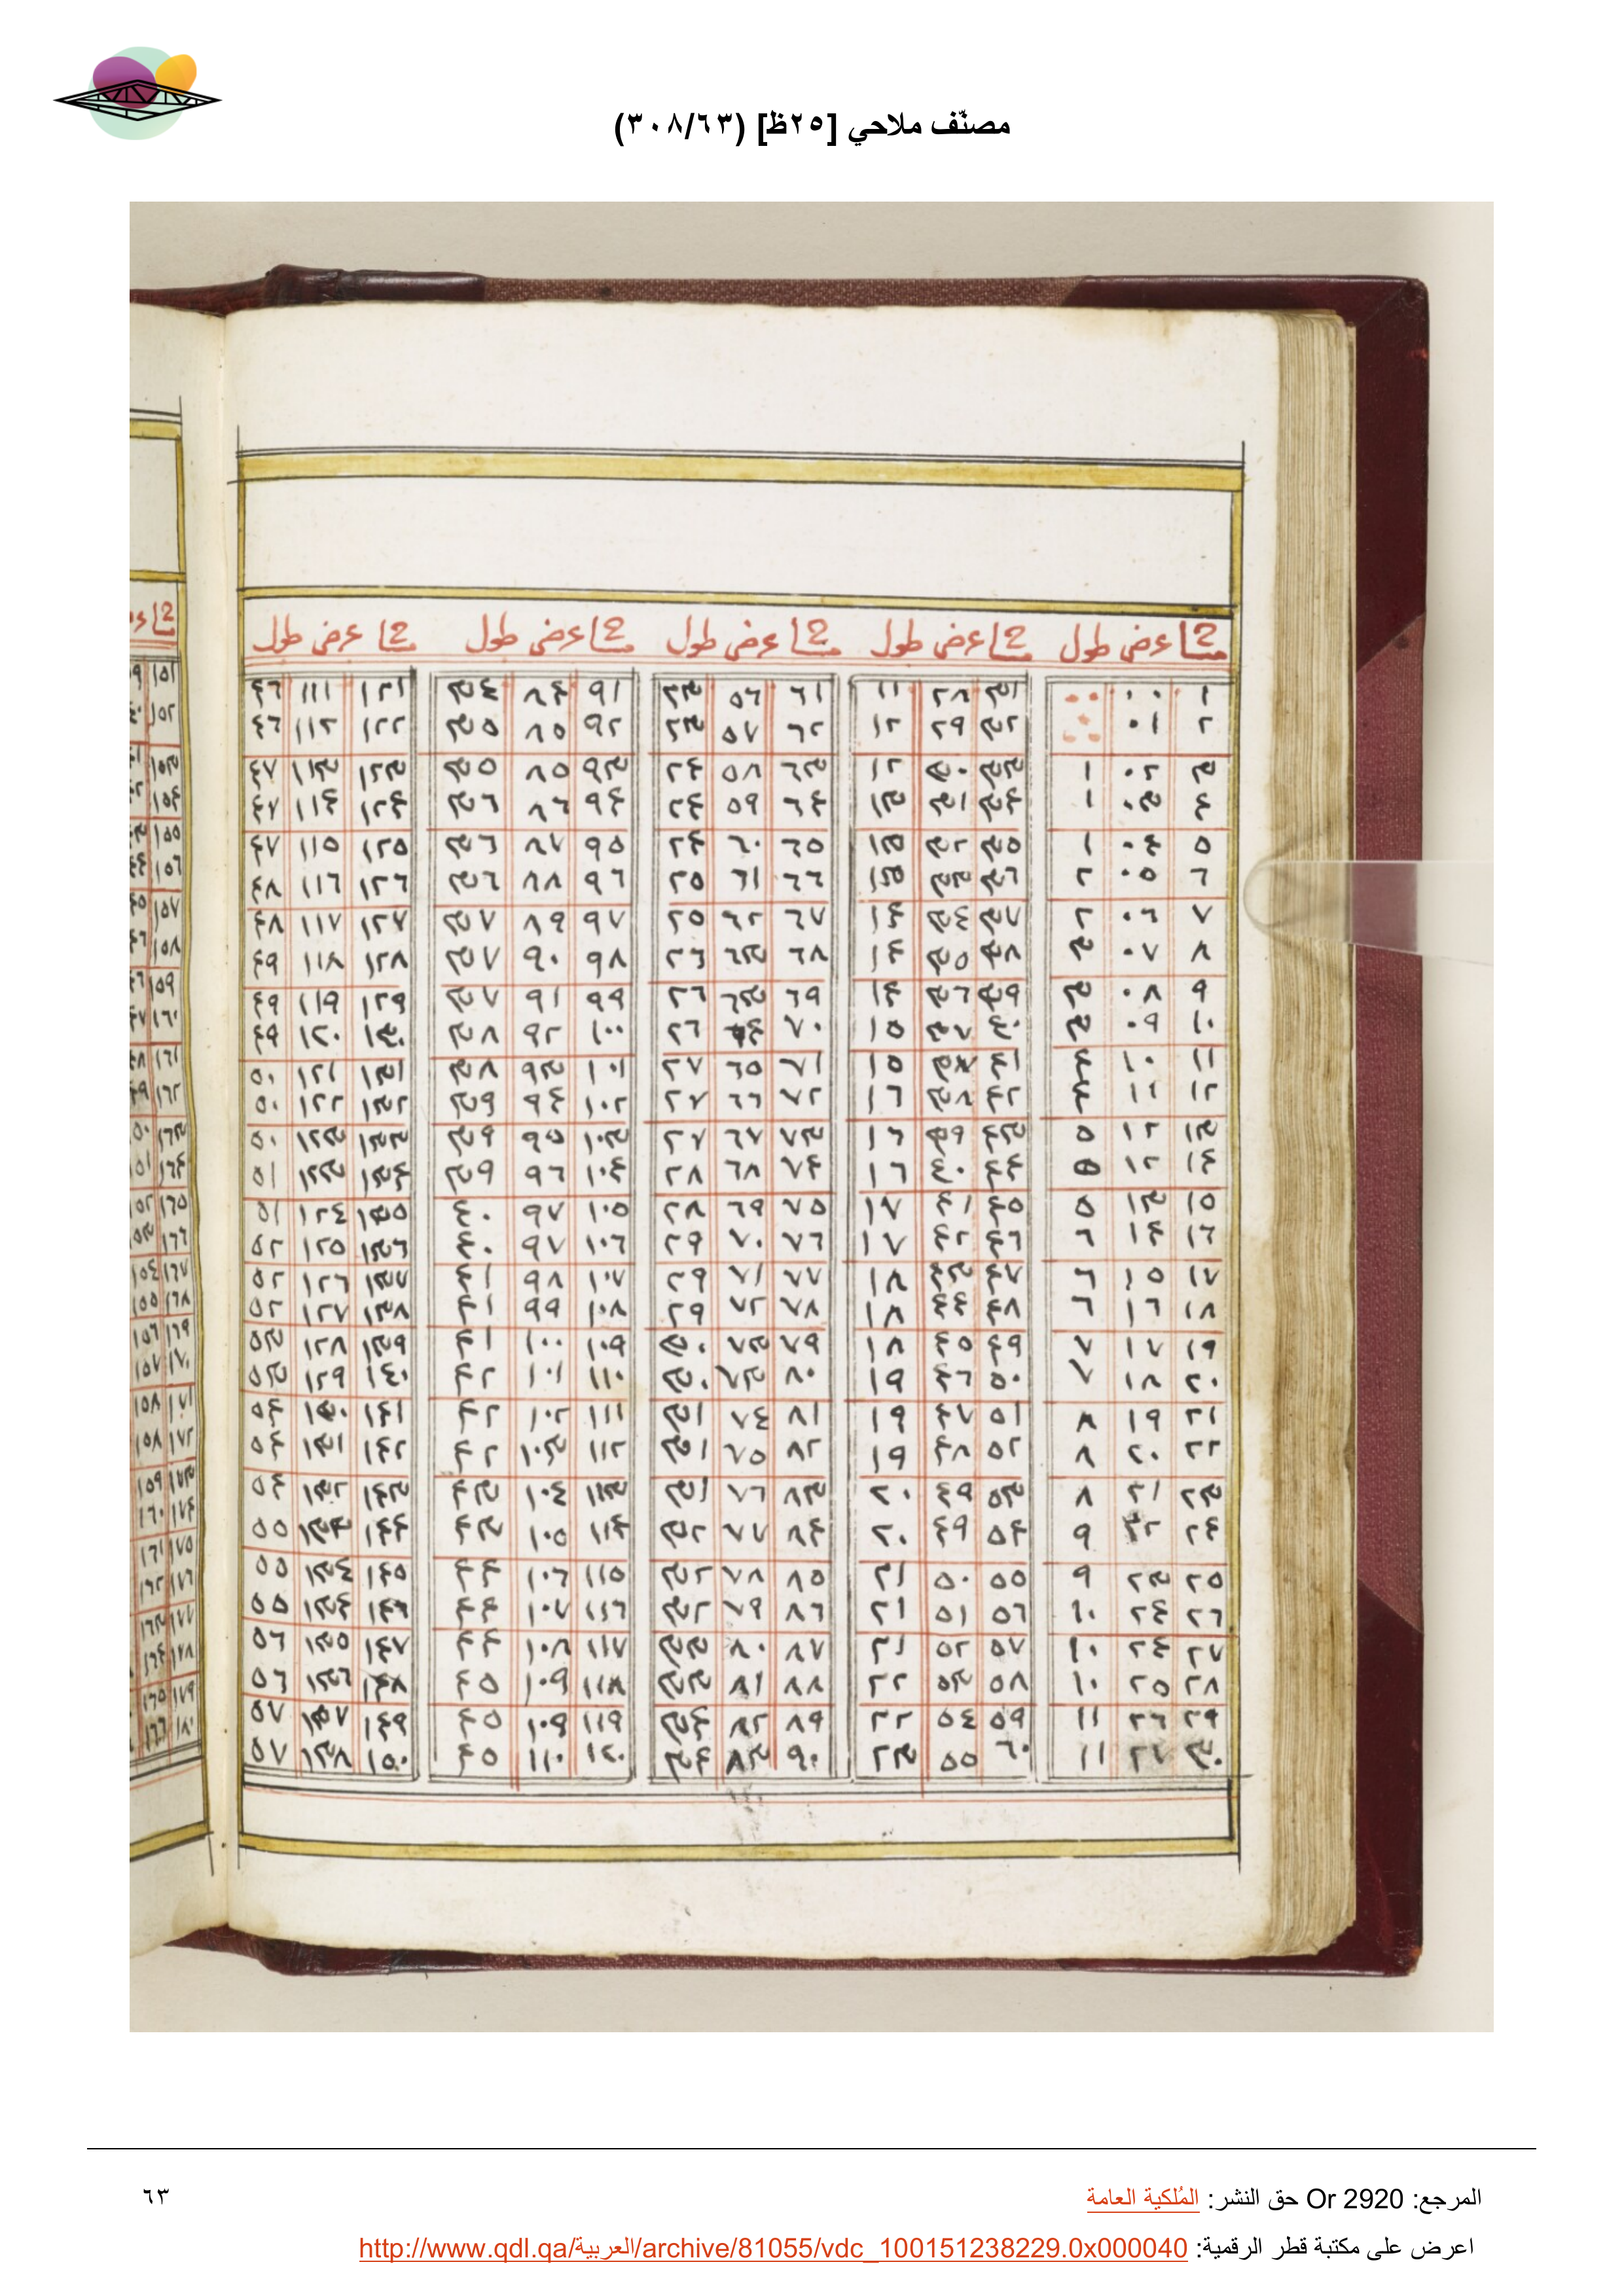 مصنّف ملاحي [٢٥ظ] (٣٠٨/٦٣)
عرض طول عرض طول عرض طول عرض طول عرض طول
١ ٠٠ ٠٠ ٣١ ٢٨ ١١ ٦١ ٥٦ ٢٣ ٩١ ٨٤ ٣٤ ١٢١ ١١١ ٤٦
٢ ٠١ ٠٠ ٣٢ ٢٩ ١٢ ٦٢ ٥٧ ٢٣ ٩٢ ٨٥ ٣٥ ١٢٢ ١١٢ ٤٦
٣ ٠٢ ١ ٣٣ ٣٠ ١٢ ٦٣ ٥٨ ٢٤ ٩٣ ٨٥ ٣٥ ١٢٣ ١١٣ ٤٧
٤ ٠٣ ١ ٣٤ ٣١ ١٣ ٦٤ ٥٩ ٢٤ ٩٤ ٨٦ ٣٦ ١٢٤ ١١٤ ٤٧
٥ ٠٤ ١ ٣٥ ٣٢ ١٣ ٦٥ ٦٠ ٢٤ ٩٥ ٨٧ ٣٦ ١٢٥ ١١٥ ٤٧
٦ ٠٥ ٢ ٣٦ ٣٣ ١٣ ٦٦ ٦١ ٢٥ ٩٦ ٨٨ ٣٦ ١٢٦ ١١٦ ٤٨
٧ ٠٦ ٢ ٣٧ ٣٤ ١٤ ٦٧ ٦٢ ٢٥ ٩٧ ٨٩ ٣٧ ١٢٧ ١١٧ ٤٨
٨ ٠٧ ٣ ٣٨ ٣٥ ١٤ ٦٨ ٦٣ ٢٦ ٩٨ ٩٠ ٣٧ ١٢٨ ١١٨ ٤٩
٩ ٠٨ ٣ ٣٩ ٣٦ ١٤ ٦٩ ٦٣ ٢٦ ٩٩ ٩١ ٣٧ ١٢٩ ١١٩ ٤٩
١٠ ٠٩ ٣ ٤٠ ٣٧ ١٥ ٧٠ ٦٤ ٢٦ ١٠٠ ٩٢ ٣٨ ١٣٠ ١٢٠ ٤٩
١١ ١٠ ٤ ٤١ ١٥ ٧١ ٦٥ ٢٧ ١٠١ ٩٣ ٣٨ ١٣١ ١٢١ ٥٠
١٢ ١١ ٤ ٤٢ ٣٨ ١٦ ٧٢ ٦٦ ٢٧ ١٠٢ ٩٤ ٣٩ ١٣٢ ١٢٢ ٥٠
١٣ ١٢ ٥ ٤٣ ٣٩ ١٦ ٧٣ ٦٧ ٢٧ ١٠٣ ٩٥ ٣٩ ١٣٣ ١٢٣ ٥٠
١٤ ١٢ ٥ ٤٤ ٤٠ ١٦ ٧٤ ٦٨ ٢٨ ١٠٤ ٩٦ ٣٩ ١٣٤ ١٢٣ ٥١
١٥ ١٣ ٥ ٤٥ ٤١ ١٧ ٧٥ ٦٩ ٢٨ ١٠٥ ٩٧ ٤٠ ١٣٥ ١٢٤ ٥١
١٦ ١٤ ٦ ٤٦ ٤٢ ١٧ ٧٦ ٧٠ ٢٩ ١٠٦ ٩٧ ٤٠ ١٣٦ ١٢٥ ٥٢
١٧ ١٥ ٦ ٤٧ ٤٣ ١٨ ٧٧ ٧١ ٢٩ ١٠٧ ٩٨ ٤١ ١٣٧ ١٢٦ ٥٢
١٨ ١٦ ٦ ٤٨ ٤٤ ١٨ ٧٨ ٧٢ ٢٩ ١٠٨ ٩٩ ٤١ ١٣٨ ١٢٧ ٥٢
١٩ ١٧ ٧ ٤٩ ٤٥ ١٨ ٧٩ ٧٣ ٣٠ ١٠٩ ١٠٠ ٤١ ١٣٩ ١٢٨ ٥٣
٢٠ ١٨ ٧ ٥٠ ٤٦ ١٩ ٨٠ ٧٣ ٣٠ ١١٠ ١٠١ ٤٢ ١٤٠ ١٢٩ ٥٣
٢١ ١٩ ٨ ٥١ ٤٧ ١٩ ٨١ ٧٤ ٣١ ١١١ ١٠٢ ٤٢ ١٤١ ١٣٠ ٥٤
٢٢ ٢٠ ٨ ٥٢ ٤٨ ١٩ ٨٢ ٧٥ ٣١ ١١٢ ١٠٣ ٤٢ ١٤٢ ١٣١ ٥٤
٢٣ ٢١ ٨ ٥٣ ٤٩ ٢٠ ٨٣ ٧٦ ٣١ ١١٣ ١٠٤ ٤٣ ١٤٣ ١٣٢ ٥٤
٢٤ ٢٢ ٩ ٥٤ ٤٩ ٢٠ ٨٤ ٧٧ ٣٢ ١١٤ ١٠٥ ٤٣ ١٤٤ ١٣٣ ٥٥
٢٥ ٢٣ ٩ ٥٥ ٥٠ ٢١ ٨٥ ٧٨ ٣٢ ١١٥ ١٠٦ ٤٤ ١٤٥ ١٣٤ ٥٥
٢٦ ٢٤ ١٠ ٥٦ ٥١ ٢١ ٨٦ ٧٩ ٣٢ ١١٦ ١٠٧ ٤٤ ١٤٦ ١٣٤ ٥٥
٢٧ ٢٤ ١٠ ٥٧ ٥٢ ٢١ ٨٧ ٨٠ ٣٣ ١١٧ ١٠٨ ٤٤ ١٤٧ ١٣٥ ٥٦
٢٨ ٢٥ ١٠ ٥٨ ٥٣ ٢٢ ٨٨ ٨١ ٣٣ ١١٨ ١٠٩ ٤٥ ١٤٨ ١٣٦ ٥٦
٢٩ ٢٦ ١١ ٥٩ ٥٤ ٢٢ ٨٩ ٨٢ ٣٤ ١١٩ ١٠٩ ٤٥ ١٤٩ ١٣٧ ٥٧
٣٠ ٢٧ ١١ ٦٠ ٥٥ ٢٣ ٩٠ ٨٣ ٣٤ ١٢٠ ١١٠ ٤٥ ١٥٠ ١٣٨ ٥٧
المرجع: Or 2920 حق النشر: المُلكية العامة
٦٣
اعرض على مكتبة قطر الرقمية: http://www.qdl.qa/العربية/archive/81055/vdc_100151238229.0x000040